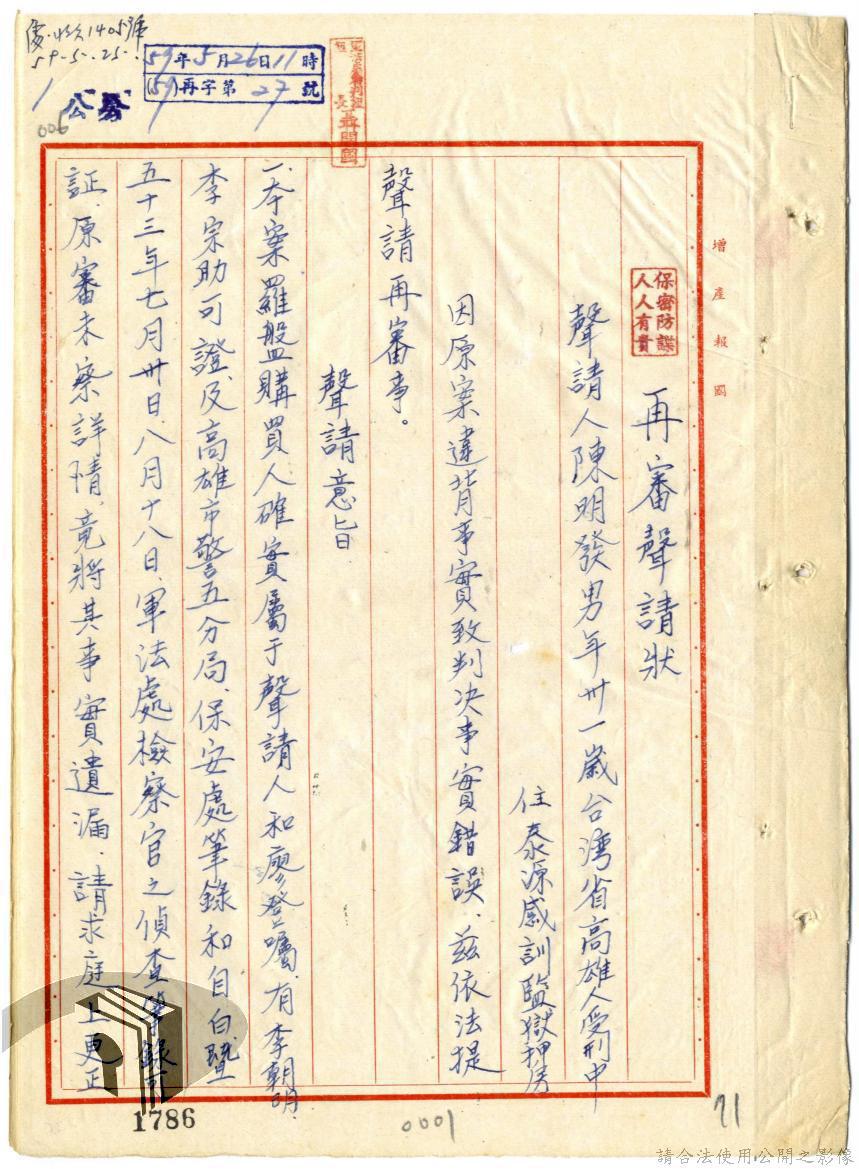 再審聲請狀
聲請人陳明發男年卅一歲台湾省高雄人受刑中
住泰源感訓監獄押房
因原案違背事實致判决事實錯誤、兹依法提
聲請再審事。
聲請意旨
一、本案羅盤購買人確實屬于聲請人和廖登囑、有李朝明、
李宗助可證、及高雄市警五分局、保安處筆錄和自白曁
五十三年七月卅日、八月十八日、軍法處檢察官之偵查筆錄可
証、原審未察詳情、竟將其事實遺漏、請求庭上更正
增產報國
保密防諜
人人有責
59年5月26日11時
(59)再字第27號
1405號
59-5-25
006
1786
0001
71
請合法使用公開之影像